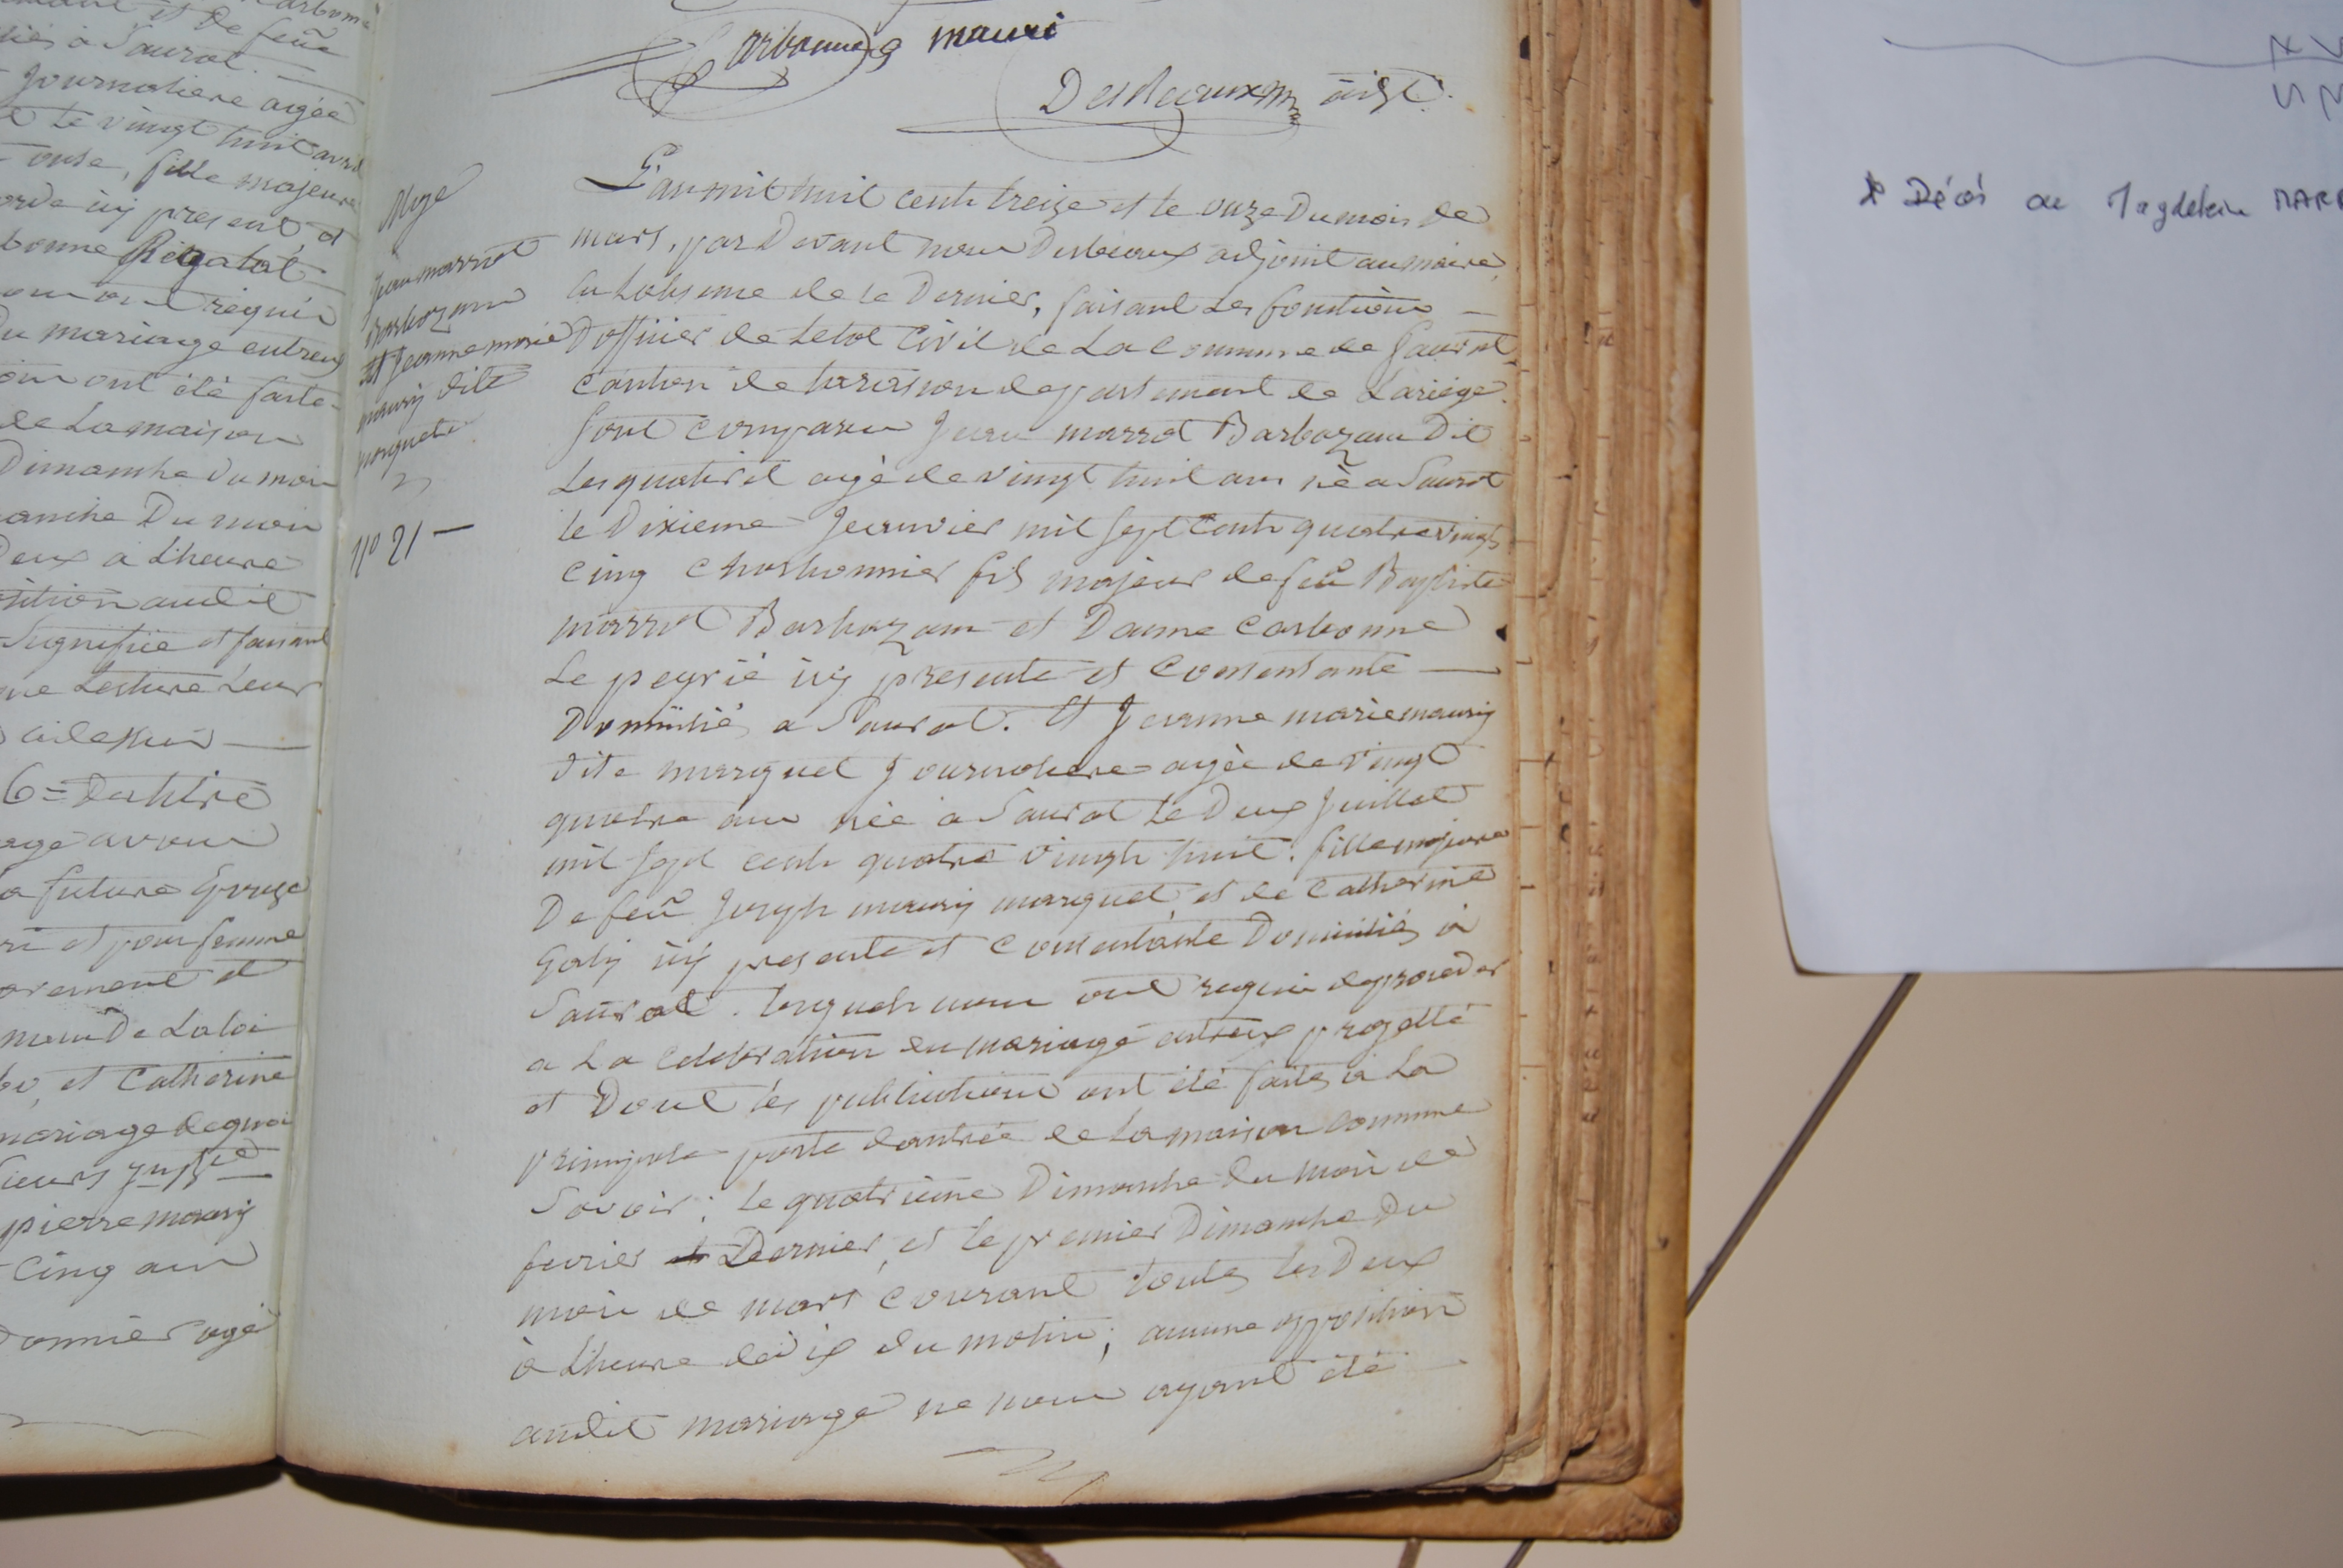 et de feue
à Saurat
Journaliere agée
le vingt huit avril
fille majeure
icy present et
bonne Rigalat
requis
Du mariage entreux
ont été faite
de La maison
Dimanche du moi
Du mois
Deux à Lheure
audit
Signifiée et faisant
Lecture
cidessus
6 = du titre
avons
future Epouse
et pour femme
de La loi
et Catherine
mariage de quoi
pierre maury
Cinq ans
agé
Carbonne mauri
Desbeaux adjt.
L'an mil huit cents treize et le onze Du mois de
mars, par Devant nous Desbeaux adjoint au maire,
en Labsence de ce Dernier, faisant Les fonctions
Dofficier de Letat Civil de La Commune de Saurat
canton de tarascon departement de Lariege.
Sont comparus Jean marrot Barbazan Dit
Lesquatiret agé de vingt huit ans né a Saurat
le Dixieme Jeanvier mil Sept Cents quatre vingts
cinq charbonnier fils majeur de feu Baptiste
marrot Barbazan et Daume Carbonne
Le peyrié icy presente et Consentante
Domiciliés a Saurat. Et Jeanne marie maury
dite marquet Journaliere agée de vingt
quatre ans née a Saurat Le Deux Juillet
mil Sept cents quatre vingts huit. fille majeure
De feu Joseph maury marquet et de Catherine
Galy icy presente et Consentante Domiciliés à
Saurat. lesquels nous ont requis de proceder
a La Celebration du mariage entreux progetté
et Dont les publications ont été faites à La
principale porte dantrée de La maison Commune
Savoir; le quatrieme Dimanche du mois de
fevrier Dernier, et le premier Dimanche Du
mois de mars Courant toutes les Deux
à Lheure de dix du matin; aucune opposition
audit mariage ne nous ayant été
Jean marrot
Barbazan
Et Jeanne marie
maury dite
marquete
N° 21
Décès de Magdeleine MARR